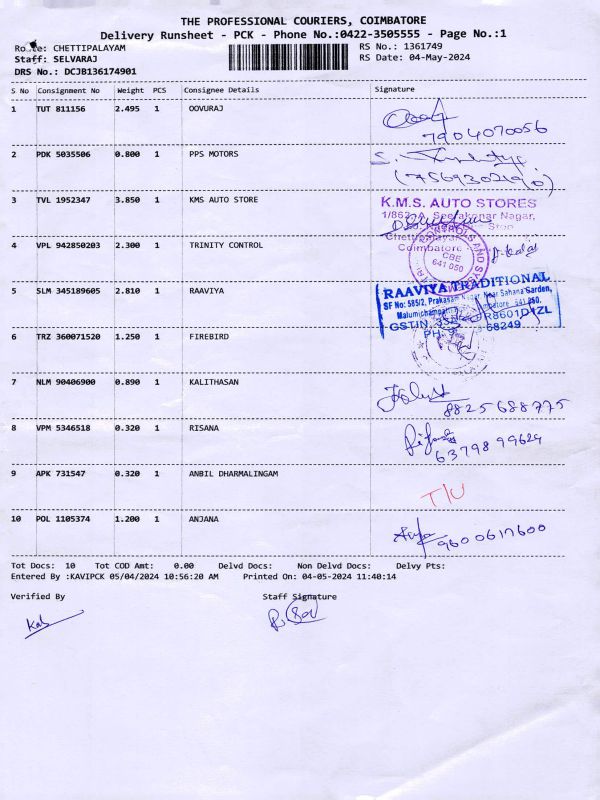 THE PROFESSIONAL COURIERS, COIMBATORE
Delivery Runsheet - PCK - Phone No.:0422-3505555 - Page No.:1
Route: CHETTIPALAYAM RS No.: 1361749
Staff: SELVARAJ RS Date: 04-May-2024
DRS No.: DCJB136174901
S No Consignment No Weight PCS Consignee Details Signature
1 TUT 811156 2.495 1 OOVURAJ
7904070056
2 PDK 5035506 0.800 1 PPS MOTORS
3 TVL 1952347 3.850 1 KMS AUTO STORE
K.M.S. AUTO STORES
1/862-A, Seerakonar Nagar,
Stop
Coimbatore
4 VPL 942850203 2.300 1 TRINITY CONTROL
CONTROLS AND
CBE
641 050
5 SLM 345189605 2.810 1 RAAVIYA
RAAVIYA TRADITIONAL
SF No: 585/2, Prakasam Nagar Near Sahana Garden,
Malumichampatti 641 050.
GSTIN. R8601D1ZL
PH. 68249
6 TRZ 360071520 1.250 1 FIREBIRD
7 NLM 90406900 0.890 1 KALITHASAN
8825688775
8 VPM 5346518 0.320 1 RISANA
6379899629
9 APK 731547 0.320 1 ANBIL DHARMALINGAM
T/U
10 POL 1105374 1.200 1 ANJANA
9600617600
Tot Docs: 10 Tot COD Amt: 0.00 Delvd Docs: Non Delvd Docs: Delvy Pts:
Entered By :KAVIPCK 05/04/2024 10:56:20 AM Printed On: 04-05-2024 11:40:14
Verified By Staff Signature